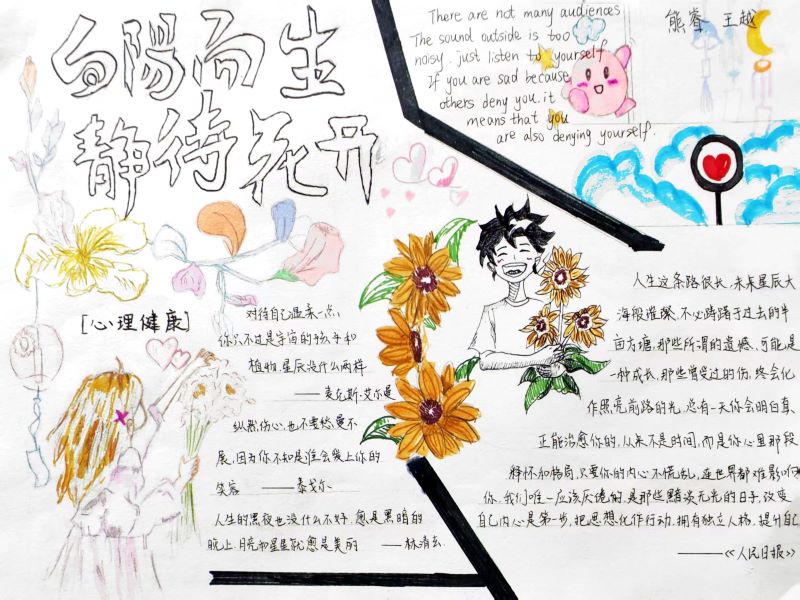 向陽而生
静待花开
There are not many audiences
The sound outside is too
noisy. just listen to yourself
If you are sad because
others deny you. it
means that you
are also denying yourself.
熊睿 王越
[心理健康]
对待自己温柔一点,
你只不过是宇宙的孩子和
植物,星辰没什么两样
——麦克斯·艾尔曼
纵然伤心,也不要愁眉不
展,因为你不知是谁会爱上你的
笑容 ——泰戈尔
人生的黑夜也没什么不好,愈是黑暗的
晚上,月亮和星星就愈是美丽 ——林清玄
人生这条路很长,未来星辰大
海般璀璨,不必踌躇于过去的半
亩方塘,那些所谓的遗憾,可能是
一种成长,那些曾受过的伤,终会化
作照亮前路的光,总有一天你会明白真
正能治愈你的,从来不是时间,而是你心里那段
释怀和格局,只要你的内心不慌乱,连世界都难影响
你,我们唯一应该厌倦的,是那些黯淡无光的日子,改变
自己内心是第一步,把思想化作行动,拥有独立人格,提升自己
——《人民日报》